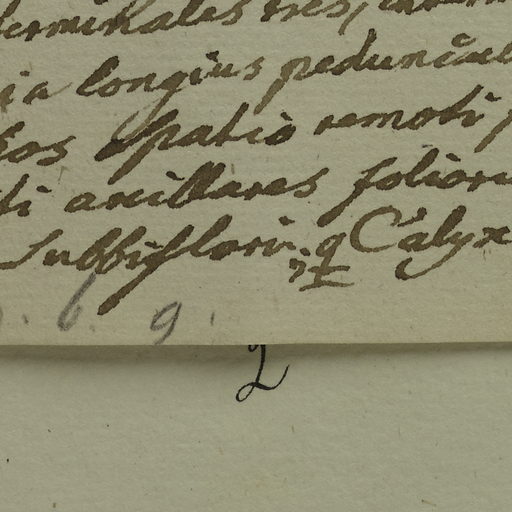 terminales tres,
longius peduncul
spatio remoti
axillares folior
Subbiflori. Calyx
6. 9.
2